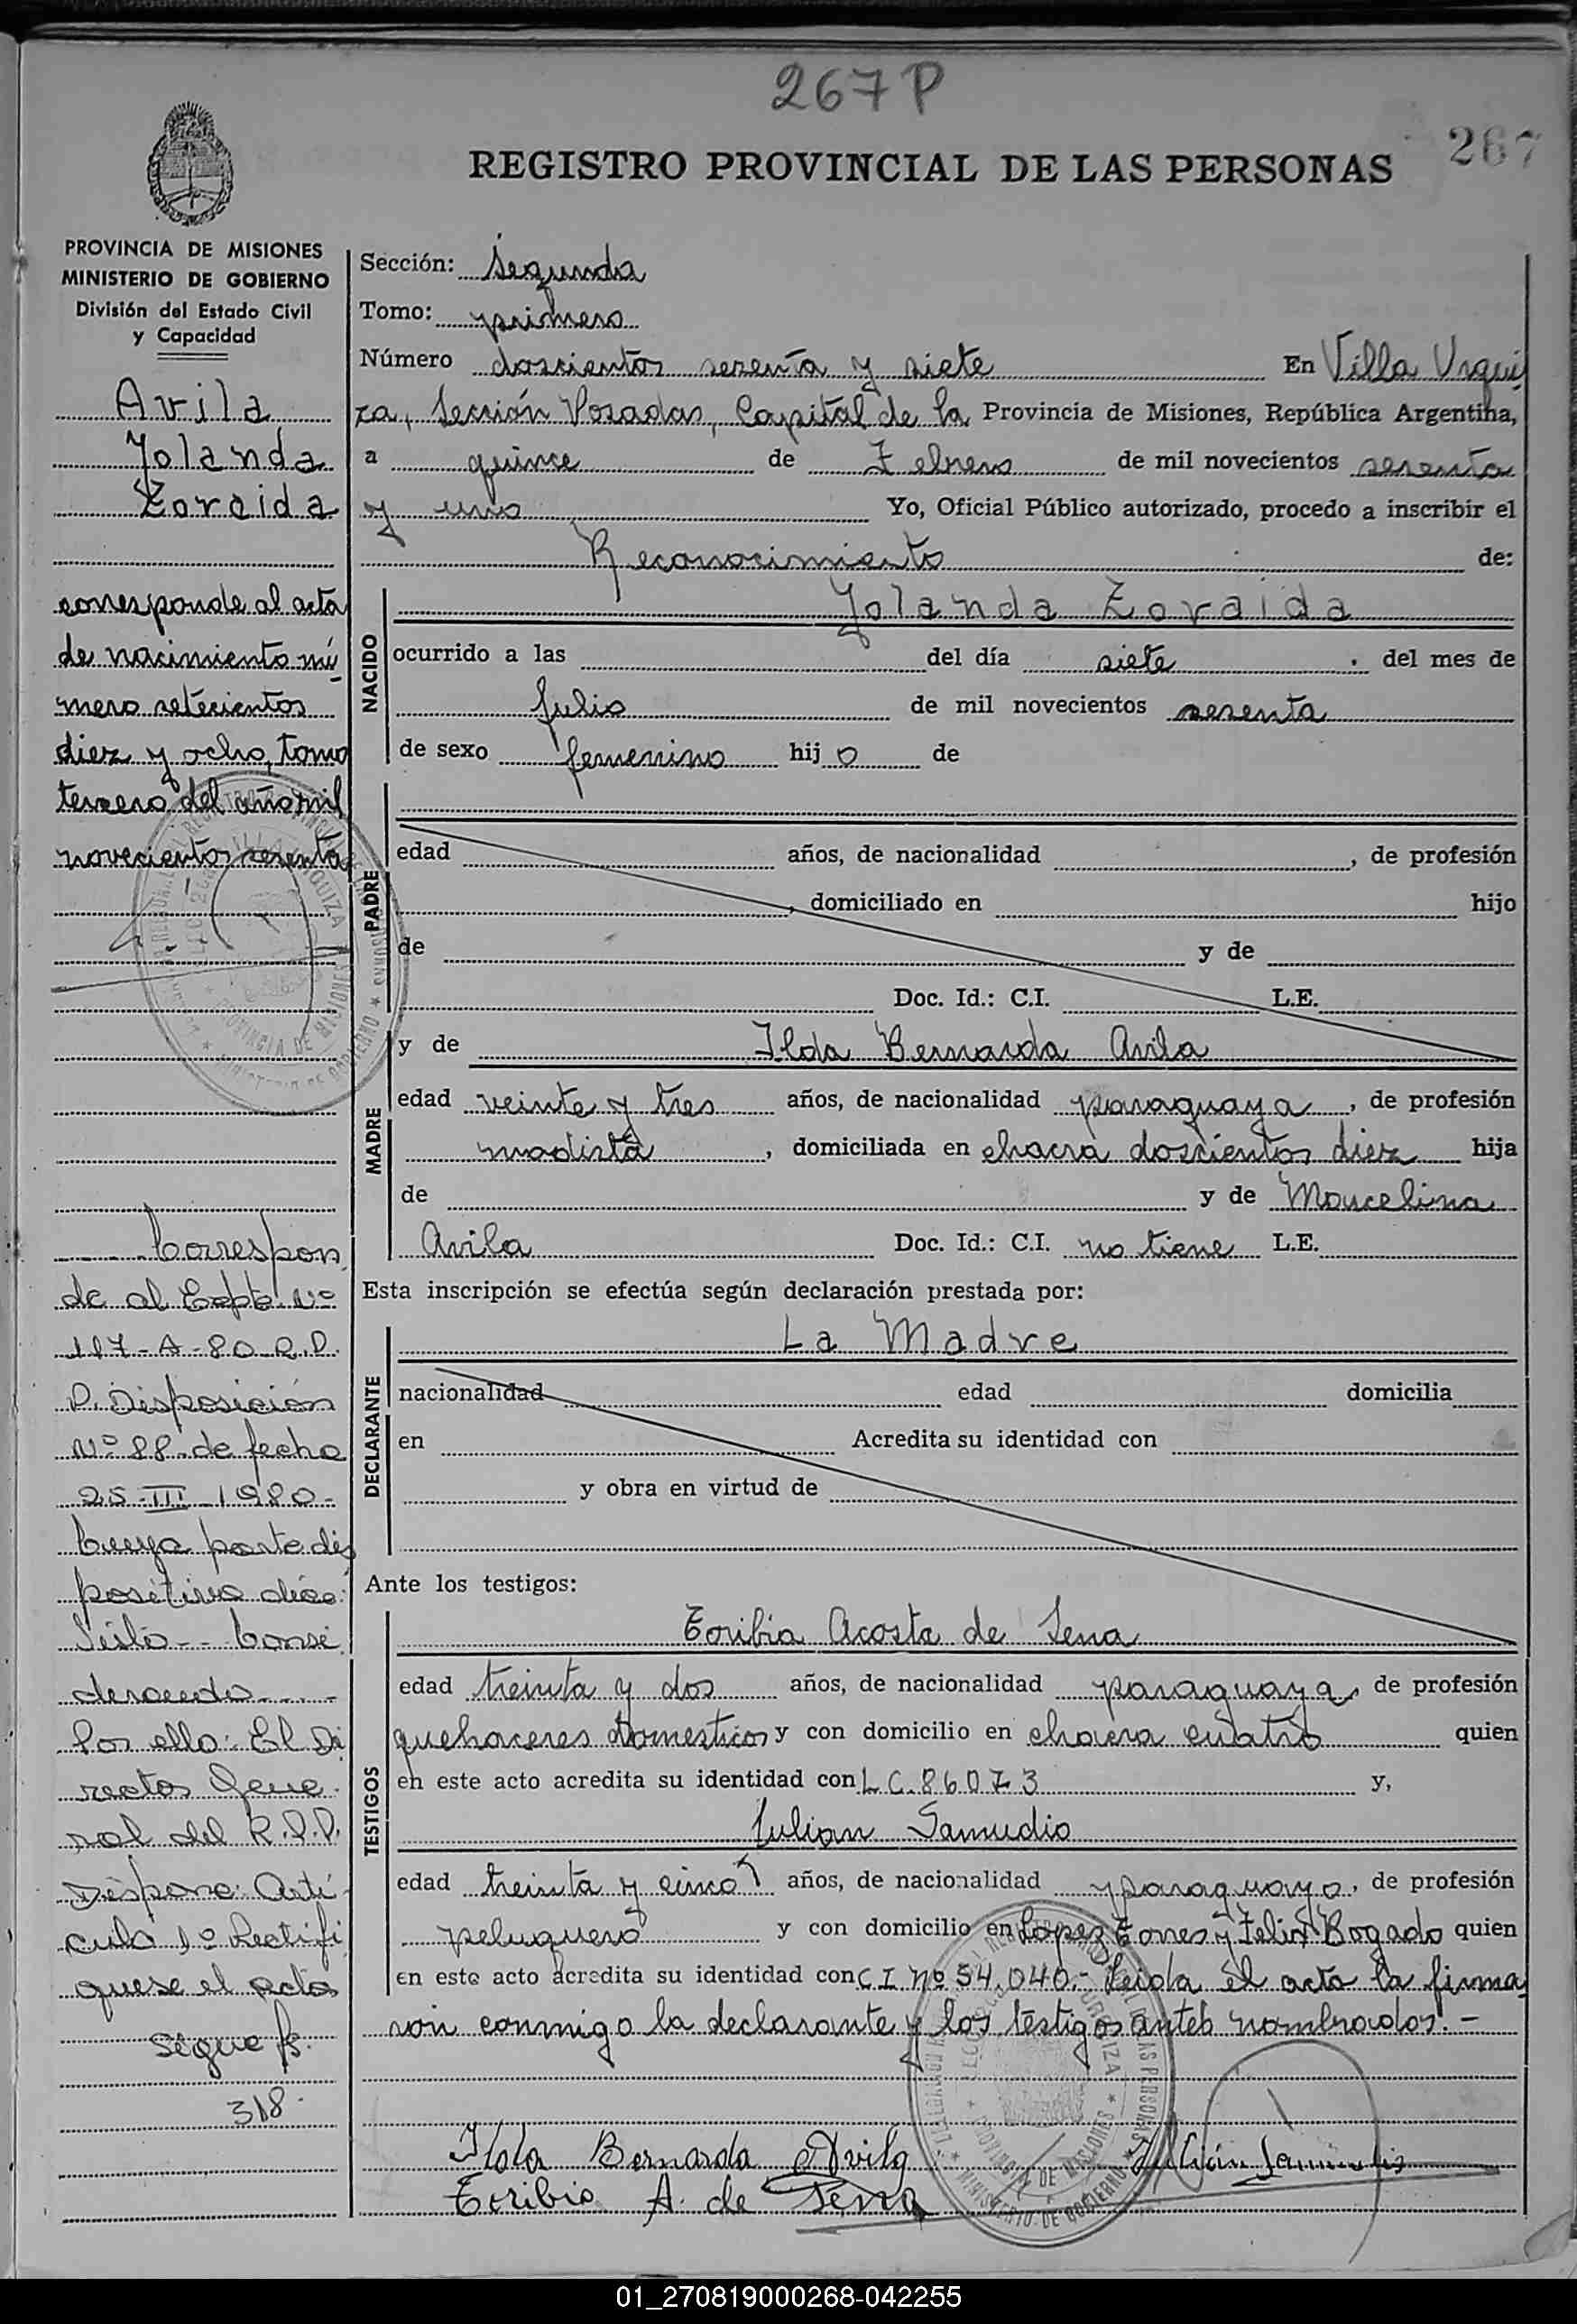 267 P
267
REGISTRO PROVINCIAL DE LAS PERSONAS
PROVINCIA DE MISIONES
MINISTERIO DE GOBIERNO
División del Estado Civil
y Capacidad
Avila
Yolanda
Zoraida
corresponde al acta
de nacimiento nú
mero setecientos
diez y ocho, tomo
tercero del año mil
novecientos sesenta
Correspon
de al Expte Nº
117-A-80 R.P.
P. Disposición
Nº 88 de fecha
25-III-1980-
Cuya parte dis
positiva dice:
Visto-- Consi
derando....-
Por ello: El Di
rector Gene
ral del R.P.P.
Dispone: Artí
culo 1º Rectifí
quese el acta
Sigue fs.
318.
Sección: Segunda
Tomo: primero
Número doscientos sesenta y siete En Villa Urqui
za, Sección Posadas, Capital de la Provincia de Misiones, República Argentina,
a quince de Febrero de mil novecientos sesenta
y uno Yo, Oficial Público autorizado, procedo a inscribir el
Reconocimiento de:
NACIDO
Yolanda Zoraida
ocurrido a las del día siete del mes de
Julio de mil novecientos sesenta
de sexo femenino hij o de
PADRE
edad años, de nacionalidad , de profesión
, domiciliado en hijo
de y de
Doc. Id.: C.I. L.E.
y de Ilda Bernarda Avila
MADRE
edad veinte y tres años, de nacionalidad paraguaya, de profesión
modista, domiciliada en chacra doscientos diez hija
de y de Marcelina
Avila Doc. Id.: C.I. no tiene L.E.
Esta inscripción se efectúa según declaración prestada por:
DECLARANTE
La Madre
nacionalidad edad domicilia
en Acredita su identidad con
y obra en virtud de
Ante los testigos:
TESTIGOS
Toribia Acosta de Sena
edad treinta y dos años, de nacionalidad paraguaya, de profesión
quehaceres domesticos y con domicilio en chacra cuatro quien
en este acto acredita su identidad con L C. 86073 y,
Julian Samudio
edad treinta y cinco años, de nacionalidad paraguayo, de profesión
peluquero y con domicilio en Lopez Torres y Felix Bogado quien
en este acto acredita su identidad con C I Nº 54.040.- Leida el acta la firma
ron conmigo la declarante y los testigos antes nombrados.-
Ilda Bernarda Avila
Julián Samudio
Toribia A. de Sena
01_270819000268-042255